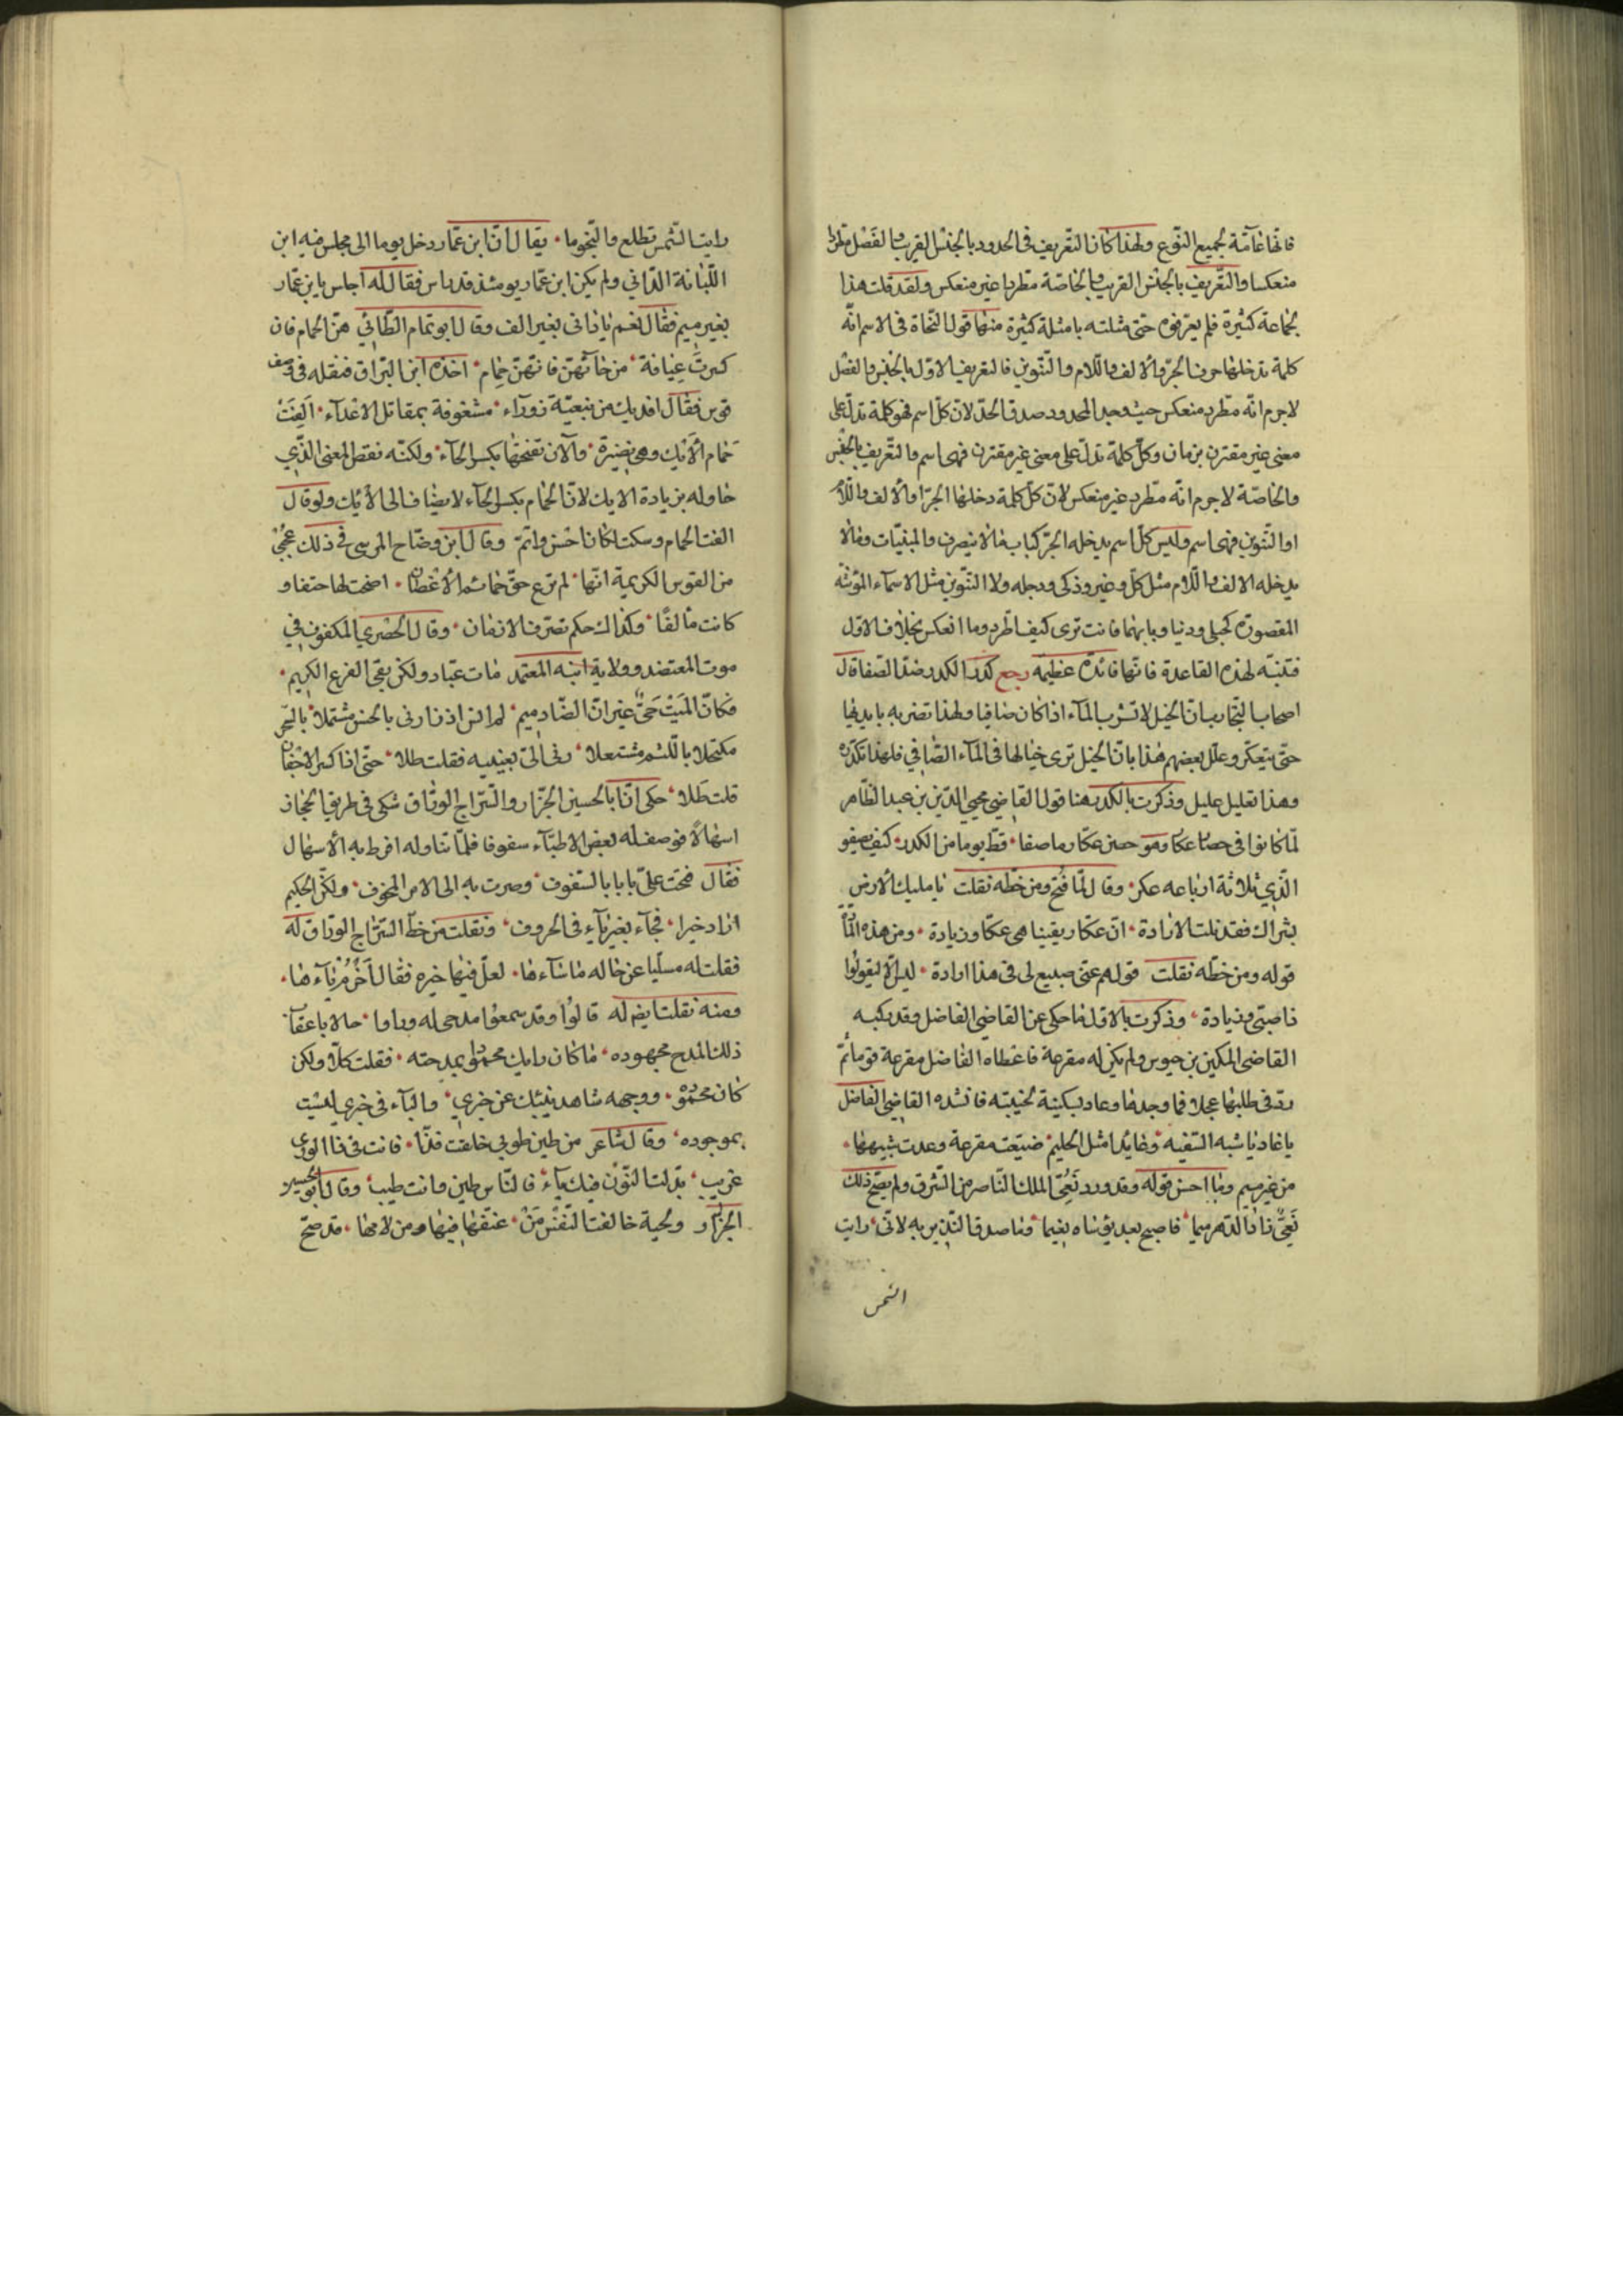 فانها عامة لجميع النوع ولهذا كان التعريف فى الحدود بالجنس القريب والفصل مطردا
منعكسا والتعريف بالجنس القريب والخاصة مطردا غير منعكس ولقد قلت هذا
لجماعة كثيرة فلم يعرفوه حتى مثلته بامثلة كثيرة منها قول النحاة فى الاسم انه
كلمة تدخلها حرف الجر والالف واللام والتنوين فالتعريف الاول بالجنس والفصل
لاجرم انه مطرد منعكس حيث وجد المحدود صدق الحد لان كل اسم فهو كلمة تدل على
معنى غير مقترن بزمان وكل كلمة تدل على معنى غير مقترن فهى اسم والتعريف بالجنس
والخاصة لاجرم انه مطرد غير منعكس لان كل كلمة دخلها الجر او الالف واللام
او التنوين فهى اسم وليس كل اسم يدخله الجر كباب مالا ينصرف والمبنيات ومالا
يدخله الالف واللام مثل كل وغير وذكى ودجله ولا التنوين مثل الاسماء المؤنثة
المقصورة كحبلى ودنيا وبابهما فانت ترى كيف اطرد وما انعكس بخلاف الاول
فتنبه لهذه القاعدة فانها فائدة عظيمه رجع كدر الكدر ضد الصفا قال
اصحاب التجارب ان الخيل لا تشرب الماء اذا كان صافيا ولهذا تضربه بايديها
حتى يتعكر وعلل بعضهم هذا بان الخيل ترى خيالها فى الماء الصافي فلهذا تكدره
وهذا تعليل عليل وذكرت بالكدر هنا قول القاضي محيي الدين بن عبد الظاهر
لما كانوا فى حصار عكا وهو حصن عكار ما صفا قط يوما من الكدر كيف يصفو
الذي ثلاثة ارباعه عكر وقال لما فتح ومن خطه نقلت يا مليك الارض
بشراك فقد نلت الارادة ان عكار يقينا هى عكا وزيادة ومن هذه المادة
قوله ومن خطه نقلت قولهم عتى صبيع لى فى هذا ارادة ليس الا ليقولوا
ذا صبتى وزيادة وذكرت بالاول ما حكى عن القاضى الفاضل وقد ركبه
القاضى المكين بن حيوس ولم يكن له مقرعة فاعطاه الفاضل مقرعة قوماثم
رد فى طلبها عجلا فما وجدها وعاد بسكينة لخيبته فانشده القاضي الفاضل
يا غاديا شبه السفيه وعائدا مثل الحليم ضيعت مقرعة وعدت شبيهها
من غير ميم وما احسن قوله وقد ورد نعي الملك الناصر من الشرق ولم يصح ذلك
نعي زاد الدهر ميما فاصبح بعد بؤساه نعيما وما صدق النذير به لانى رايت
الشمس
رايت الشمس تطلع والنجوما يقال ان ابن عمار دخل يوما الى مجلس فيه ابن
اللبانة الداني ولم يكن ابن عمار يومئذ قد راس فقال له اجلس يا بن عمار
بغير ميم فقال نعم يا دانى بغير الف وقال ابو تمام الطائي هن الحمام فان
كسرت عيافة من حائهن فانهن حمام اخذه ابن البراق فنقله فى وصف
قوس فقال افديك من نبعية زوراء مشغوفة بمقاتل الاعداء الفت
حمام الايك وهى نضيرة والآن تفتحها بكسر الحاء ولكنه نقص المعنى الذي
حاوله بزيادة الايك لان الحمام بكسر الحاء لا يضاف الى الايك ولو قال
الفت الحمام وسكت لكان احسن واتم وقال ابن وضاح المرسى فى ذلك عجبي
من القوس الكريمة انها لم ترع حق حمائم الاغصان اضحت لها حتفا و
كانت مألفا وكذاك حكم تصرف الازمان وقال الحصري المكفوف في
موت المعتضد وولاية ابنه المعتمد مات عباد ولكن بقى الفرع الكريم
فكان الميت حي غير ان الضاد ميم لم انس اذ زارنى بالحسن مشتملا بالسحر
مكتحلا باللثم مشتعلا رنى الى بعينيه فقلت طلا حتى اذا كسر الاجفان
قلت طلا حكى ان ابا الحسين الجزار والسراج الوراق شكى فى طريق الحجاز
اسهالا فوصف له بعض الاطباء سفوفا فلما تناوله افرط به الاسهال
فقال فتحت على بابا بالسفوف وصرت به الى الامر المخوف ولكن الحكيم
اراد خيرا فجآء بغير يآء فى الحروف ونقلت من خط السراج الوراق له
فقلت له مسليا عن حاله ما شاء ها لعل فيها خيره فقال اخر من ياء ها
ومنه نقلت ايضا له قالوا وقد سمعوا مدحى له وراوا حالا باعقاب
ذلك المدح مجهوده ما كان رايك محمودا بمدحته فقلت كلا ولكن
كان محموده ووجهه شاهد ينبئك عن خبري والباء فى خبري ليست
بموجوده وقال شاعر من طين طوبى خلقت فذا فانت فى ذا الورى
غريب بدلت النون فيك ياء فالناس طين وانت طيب وقال ابو الحسين
الجزار ولحية خالفت النفس من عنفها فيها ومن لامها قد صح